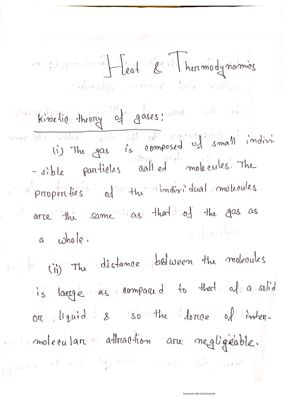 Heat & Thermodynamics
Kinetic theory of gases:
(i) The gas is composed of small indivi
-sible particles called molecules. The
properties of the individual molecules
are the same as that of the gas as
a whole.
(ii) The distance between the molecules
is large as compared to that of a solid
or liquid & so the force of inter-
molecular attraction are negligeable.
Scanned with CamScanner